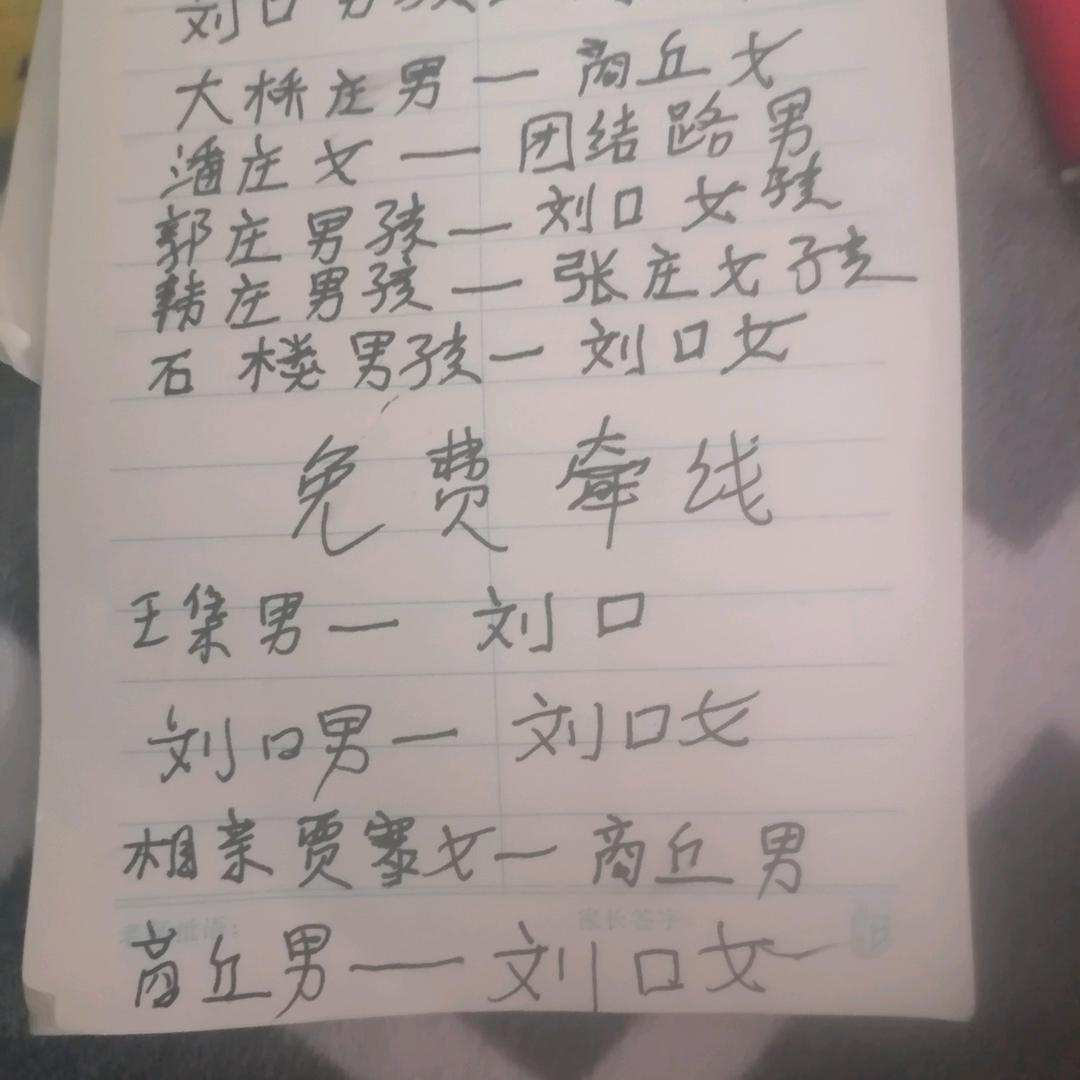 刘口男孩
大桥庄男一商丘女
潘庄女一团结路男
郭庄男孩一刘口女孩
韩庄男孩一张庄女孩
石楼男孩一刘口女
免费牵线
王集男一刘口
刘口男一刘口女
相亲贾寨女一商丘男
家长签字:
商丘男一刘口女